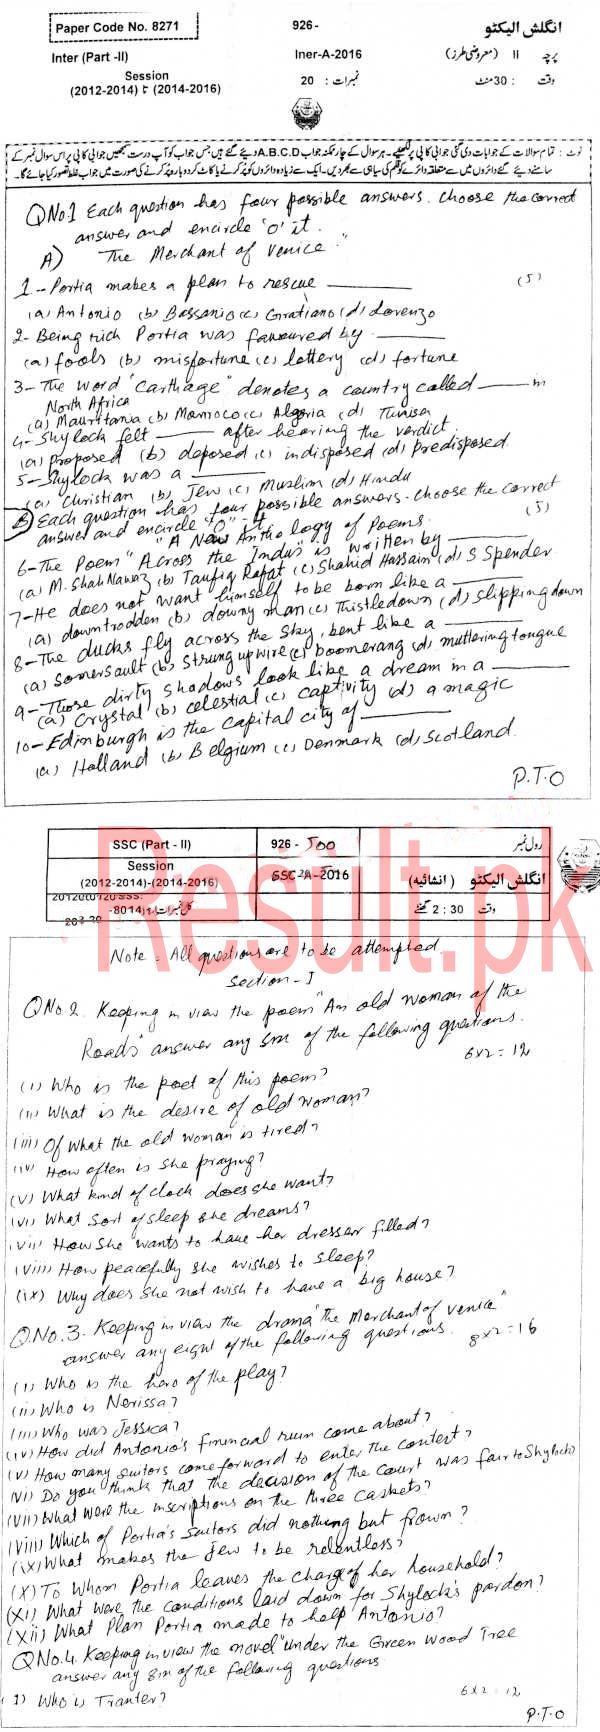 Paper Code No. 8271
926-
انگلش الیکٹو
Inter (Part -II)
Iner-A-2016
پرچہ II (معروضی طرز)
Session
(2012-2014) تا (2014-2016)
نمبرات : 20
وقت : 30 منٹ
نوٹ : تمام سوالات کے جوابات دی گئی جوابی کاپی پر لکھیے۔ ہر سوال کے چار ممکنہ جواب A.B.C.D دیئے گئے ہیں جس جواب کو آپ درست سمجھیں جوابی کاپی پر اس سوال نمبر کے
سامنے دیئے گئے دائروں میں سے متعلقہ دائرے کو قلم کی سیاہی سے بھر دیں۔ ایک سے زیادہ دائروں کو پُر کرنے یا کاٹ کر دوبارہ پُر کرنے کی صورت میں جواب غلط تصور کیا جائے گا۔
QNo.1 Each question has four possible answers. Choose the correct
answer and encircle "O" it.
A) The Merchant of Venice"
1- Portia makes a plan to rescue ________ (5)
(a) Antonio (b) Bassanio (c) Gratiano (d) Lorenzo
2- Being rich Portia was favoured by ________
(a) fools (b) misfortune (c) lottery (d) fortune
3- The word "Carthage" denotes a country called ______ in
North Africa
(a) Mauritania (b) Morroco (c) Algeria (d) Tunisa
4- Shylock felt ______ after hearing the verdict.
(a) proposed (b) deposed (c) indisposed (d) predisposed
5- Shylock was a ________
(a) Christian (b) Jew (c) Muslim (d) Hindu
(B) Each question has four possible answers. Choose the correct
answer and encircle "O" it. (5)
"A New Anthology of Poems.
6- The Poem "Across the Indus" is written by ________
(a) M. Shah Nawaz (b) Taufiq Rafat (c) Shahid Hossain (d) S Spender
7- He does not want himself to be born like a ________
(a) downtrodden (b) downy man (c) Thistledown (d) slipping down
8- The ducks fly across the sky, bent like a ________
(a) Somersault (b) Strung up wire (c) boomerang (d) muttering tongue
9- Those dirty shadows look like a dream in a ________
(a) Crystal (b) celestial (c) captivity (d) a magic
10- Edinburgh is the capital city of ________
(a) Holland (b) Belgium (c) Denmark (d) Scotland.
P.T.O
SSC (Part - II)
926 - 500
رول نمبر
Session
(2012-2014)-(2014-2016)
SSC-A-2016
انگلش الیکٹو ( انشائیہ )
وقت 2 : 30 گھنٹے
Result.pk
Note : All questions are to be attempted.
Section - I
QNo 2. Keeping in view the poem "An old woman of the
Roads" answer any six of the following questions.
6x2=12
(i) Who is the poet of this poem?
(ii) What is the desire of old woman?
(iii) Of what the old woman is tired?
(iv) How often is she praying?
(v) What kind of clock does she want?
(vi) What sort of sleep she dreams?
(vii) How she wants to have her dresser filled?
(viii) How peacefully she wishes to sleep?
(ix) Why does she not wish to have a big house?
Q.No.3- Keeping in view the drama "The Merchant of Venice"
answer any eight of the following questions. 8x2=16
(i) Who is the hero of the play?
(ii) Who is Nerissa?
(iii) Who was Jessica?
(iv) How did Antonio's financial ruin come about?
(v) How many suitors come forward to enter the contest?
(vi) Do you think that the decision of the court was fair to Shylock?
(vii) What were the inscriptions on the three caskets?
(viii) Which of Portia's Suitors did nothing but frown?
(ix) What makes the Jew to be relentless?
(X) To Whom Portia leaves the charge of her household?
(xi) What were the conditions laid down for Shylock's pardon?
(xii) What Plan Portia made to help Antonio?
QNo.4. Keeping in view the novel "under the Green Wood Tree
answer any six of the following questions
6x2=12
1) Who is Tranter?
P.T.O